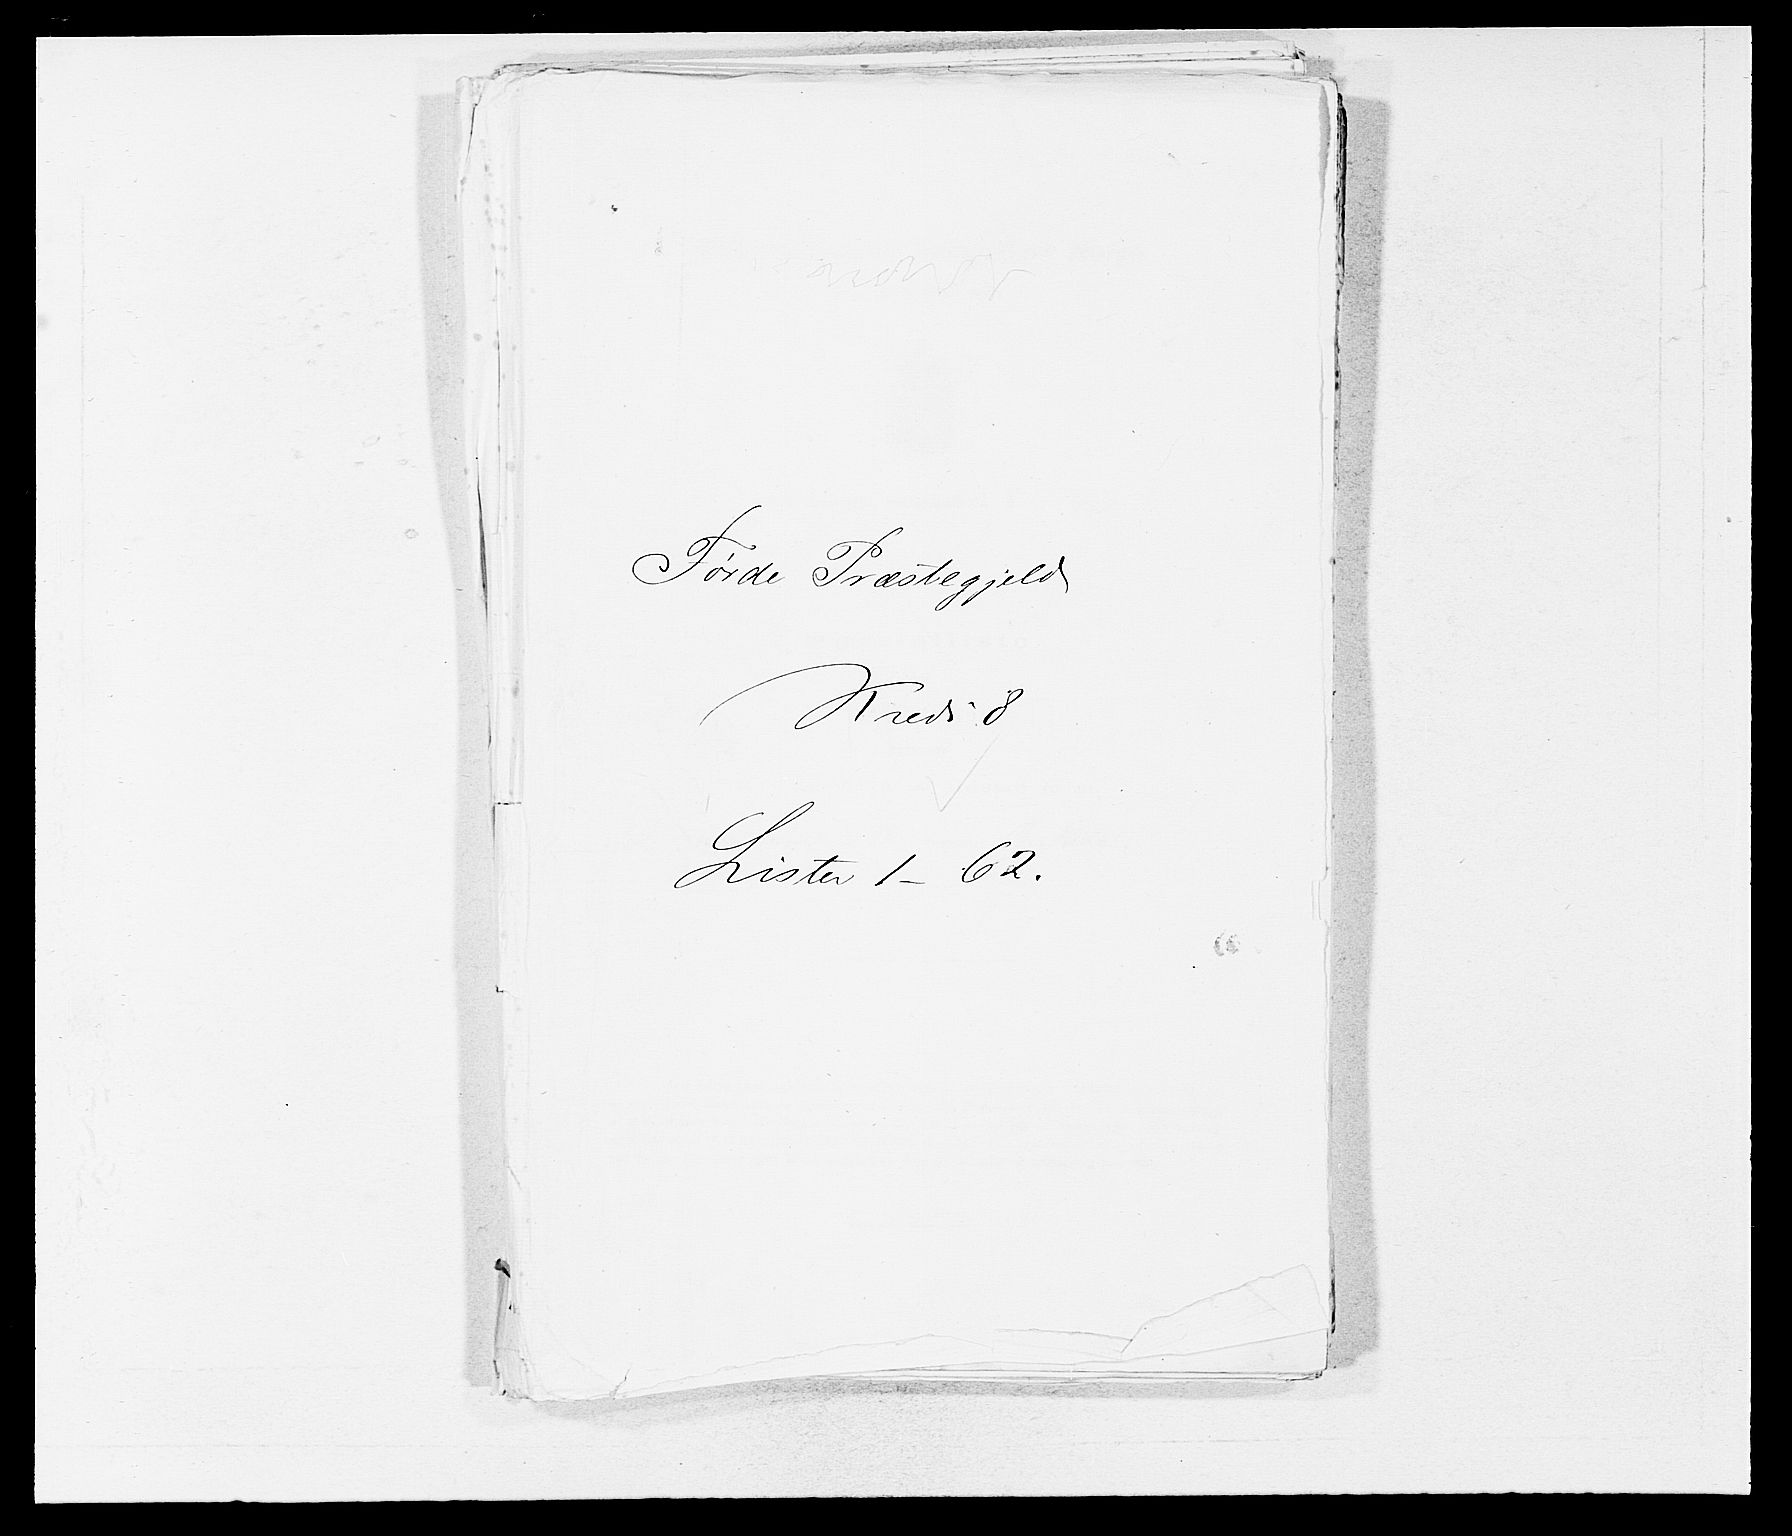 Førde Præstegjeld
Kreds 8
Lister 1 - 62.